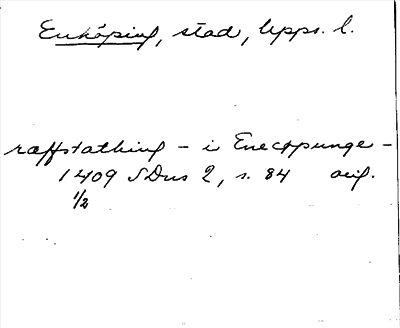 Enköping, stad, Upps. l.
ræffstathing - i Enecøpunge -
1409 SDns 2, s. 84 orig.
1/2